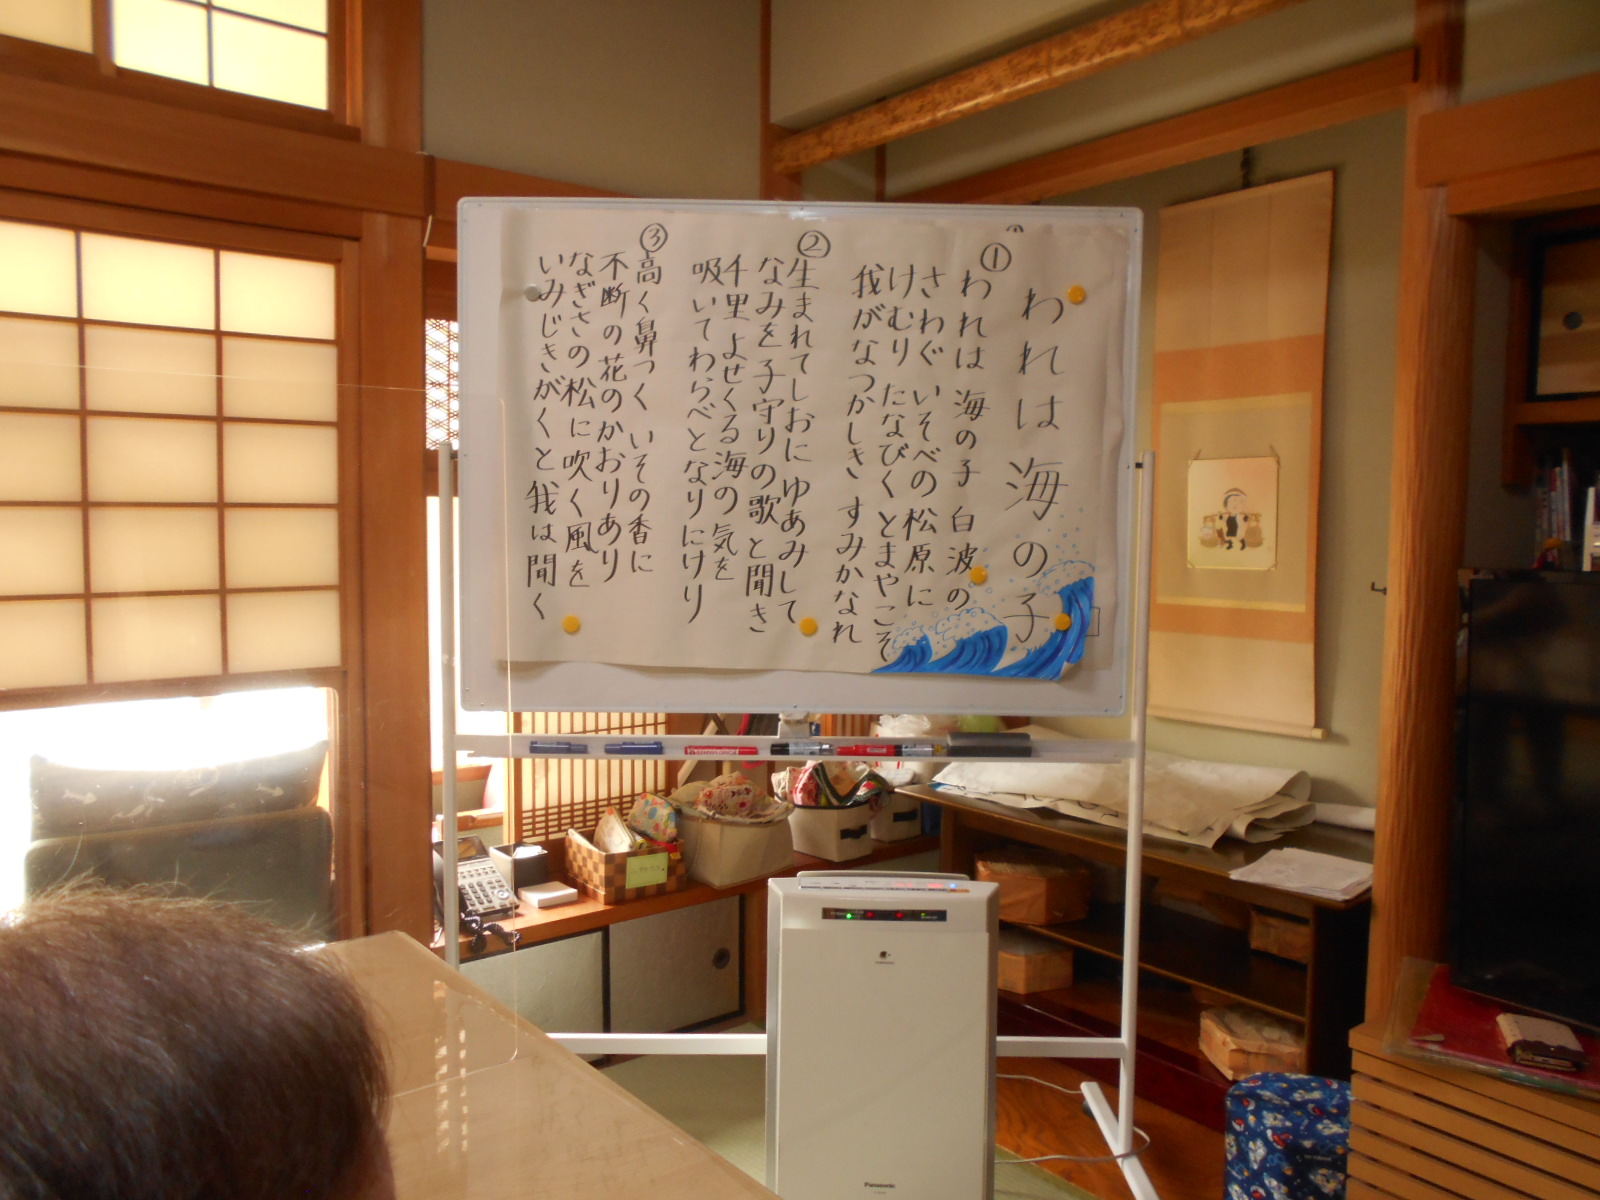 われは海の子
①
われは 海の子 白波の
さわぐ いそべの松原に
けむり たなびくとまやこそ
我がなつかしき すみかなれ
②
生まれてしおに ゆあみして
なみを子守りの歌と聞き
千里 よせくる海の気を
吸いてわらべとなりにけり
③
高く鼻つく いその香に
不断の花のかおりあり
なぎさの松に吹く風を
いみじきがくと我は聞く
Panasonic